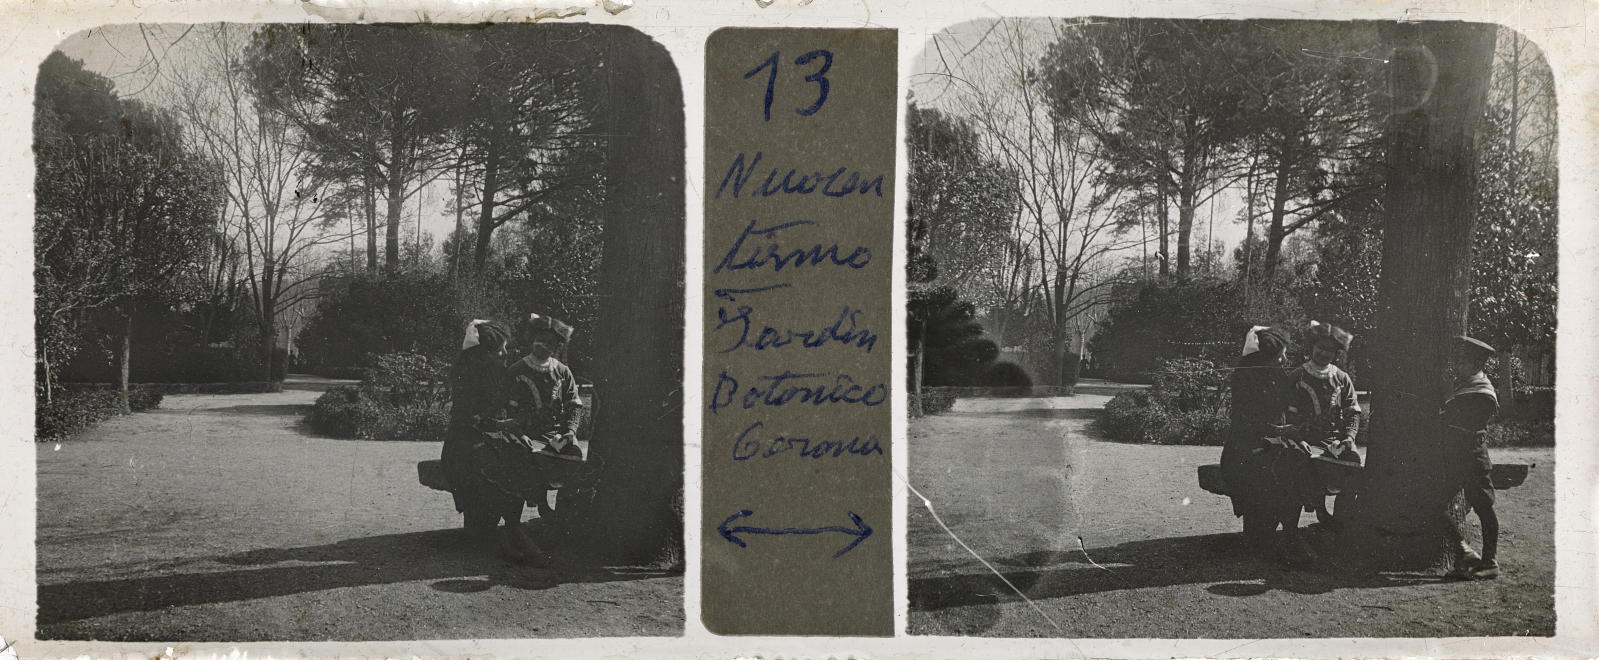 13
Nuocen
tismo
Jardin
Botonico
Gorona